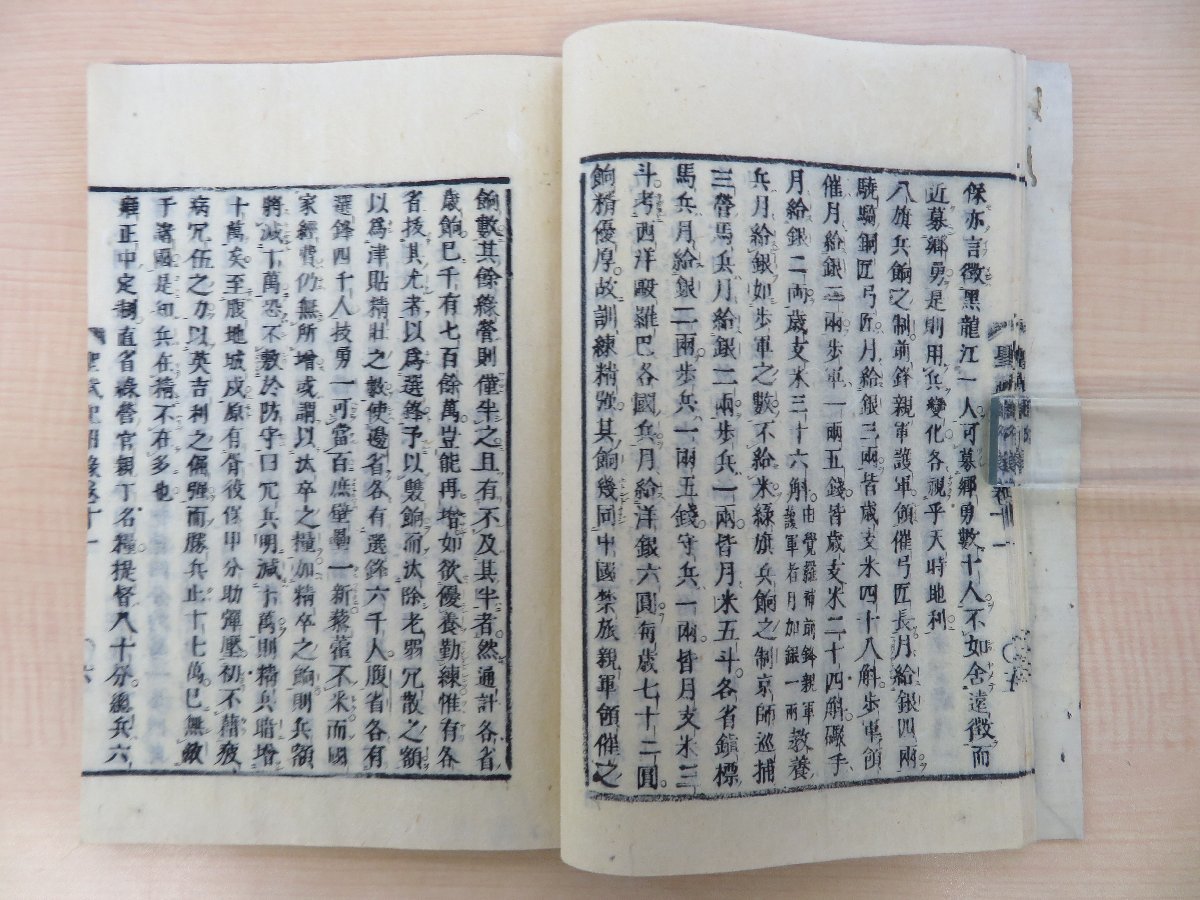 保亦言徵黑龍江一人可募鄉勇數十人不如舍遠徵而
近募鄉勇是則用兵變化各視乎天時地利
八旗兵餉之制前鋒親軍護軍領催弓匠長月給銀四兩
驍騎銅匠弓匠月給銀三兩皆歲支米四十八斛步軍領
催月給銀二兩步軍一兩五錢皆歲支米二十四斛礮手
月給銀二兩歲支米三十六斛由覺羅補前鋒親軍護軍者月加銀一兩教養
兵月給銀如步軍之數不給米綠旗兵餉之制京師巡捕
三營馬兵月給銀二兩步兵一兩皆月米五斗各省鎮標
馬兵月給銀二兩步兵一兩五錢守兵一兩皆月支米三
斗考西洋歐羅巴各國兵月給洋銀六圓每歲七十二圓
餉糈優厚故訓練精强其餉幾同中國禁旅親軍領催之
餉數其餘綠營則僅半之且有不及其半者然通計各省
歲餉巳千有七百餘萬豈能再增如欲優養勤練惟有各
省拔其尤者以爲選鋒予以雙餉而汰除老弱冗散之額
以爲津貼精壯之數使邊省各有選鋒六千人腹省各有
選鋒四千人技勇一可當百庶壁壘一新藜藿不采而國
家經費仍無所增或謂以汰卒之糧加精卒之餉則兵額
將減十萬恐不敷於防守曰冗兵明減十萬則精兵暗增
十萬矣至廢地城戍原有脊役保甲分助彈壓初不藉疲
病冗伍之力以英吉利之倔强而勝兵止十七萬巳無敵
于諸國是知兵在精不在多也
雍正中定制直省綠營官親丁名糧提督八十分總兵六
聖武記附錄卷十一
六